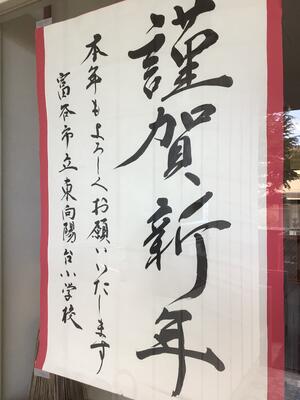 謹賀新年
本年もよろしくお願いいたします
富谷市立東向陽台小学校